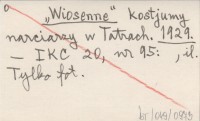 „Wiosenne" kostjumy
narciarzy w Tatrach. 1929.
— IKC 20, nr 95: , il.
Tylko fot.